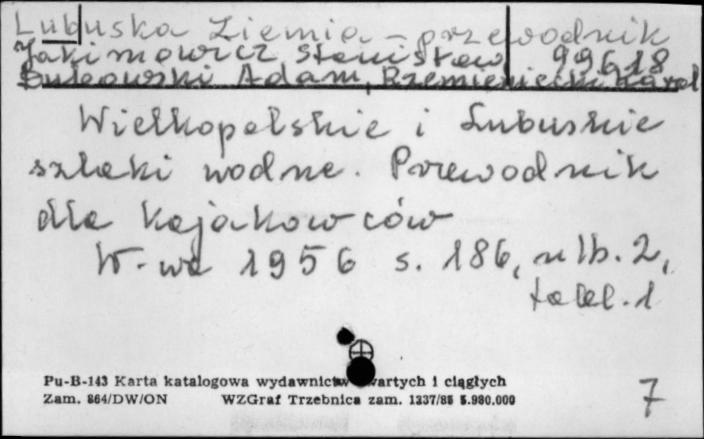 Lubuska Ziemia - przewodnik
Jakimowicz Stanisław 99618
Adam, Rzemieniecki Karol
Wielkopolskie i Lubuskie
szlaki wodne. Przewodnik
dla kajakowców
W-wa 1956 s. 186, nlb. 2,
tabl. 1
Pu-B-143 Karta katalogowa wydawnictw zwartych i ciągłych
Zam. 864/DW/ON WZGraf Trzebnica zam. 1337/85 5.980.000
7